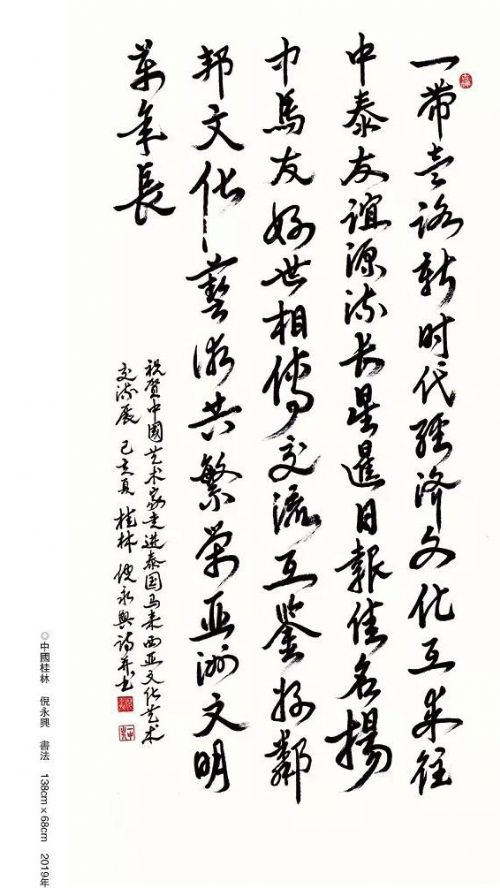 一帶壹路新时代經济文化互来往
中泰友谊源流长星暹日報佳名揚
中馬友好世相傳交流互鉴好鄰
邦文化藝術共繁荣亚洲文明
萬年長
祝贺中國艺术家走进泰国马来西亚文化艺术
交流展 己亥夏 桂林 倪永興诗并书
◎中國桂林 倪永興 書法 138cm×68cm 2019年